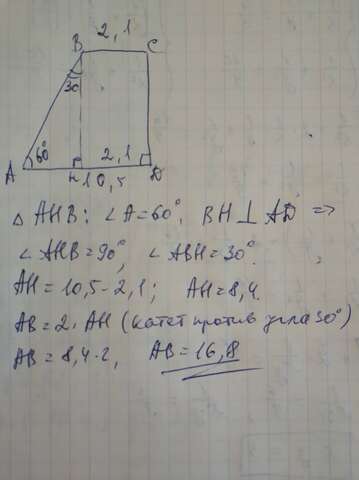 2,1
B C
30
60°
2,1
A H 10,5 D
△ AHB: ∠A=60°, BH⊥AD =>
∠AHB=90°, ∠ABH=30°.
AH=10,5-2,1; AH=8,4.
AB=2·AH (катет против угла 30°)
AB=8,4·2, AB=16,8